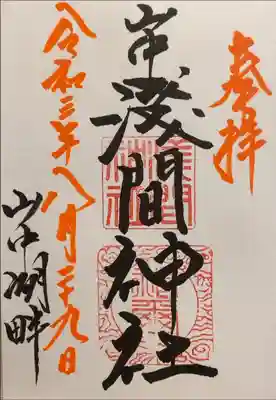 奉拝
山中浅間神社
令和三年八月二十九日
山中湖畔